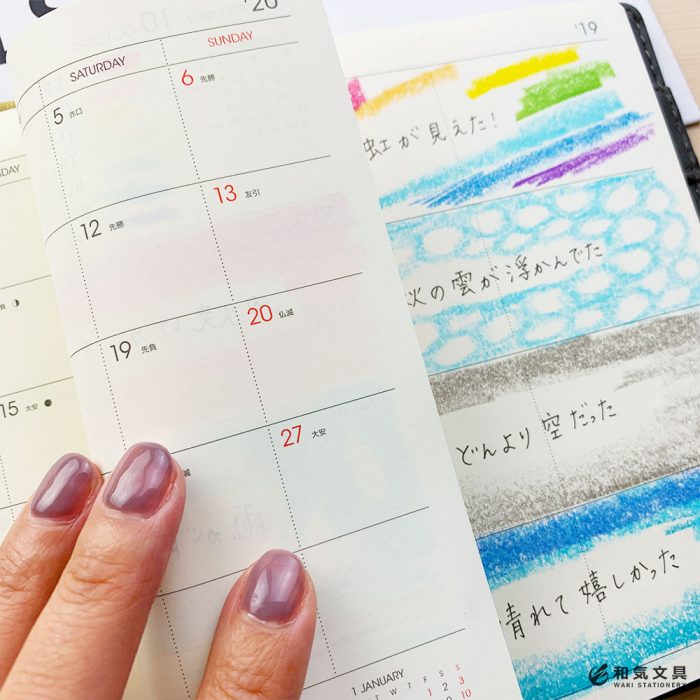 '20
SATURDAY
SUNDAY
5 赤口
6 先勝
12 先勝
13 友引
19 先負
20 仏滅
27 大安
15 大安
1 JANUARY
T W T F S S
1 2 3
10
'19
虹が見えた!
火の雲が浮かんでた
どんより空だった
晴れて嬉しかった
和気文具
WAKI STATIONERY